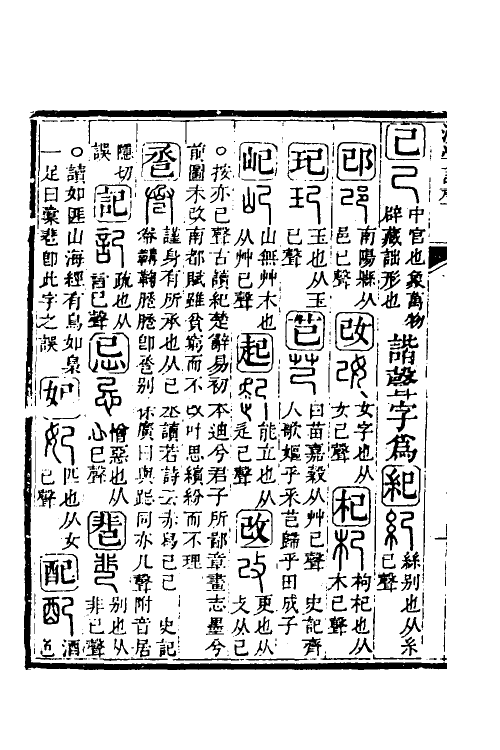 己 中宮也象萬物辟藏詘形也 諧聲字為 紀 絲別也从糸己聲
邔 南陽縣从邑己聲 妀 女字也从女己聲 杞 枸杞也从木己聲
玘 玉也从玉己聲 芑 曰苗嘉穀从艸己聲 史記齊人歌嫗乎采芑歸乎田成子
屺 山無艸木也从艸己聲 起 能立也从走己聲 改 更也从攴己
○按亦己聲古讀紀楚辭易初本迪兮君子所鄙章畫志墨兮
前圖未改南都賦雖貧窮而不改叶思繽紛而不理
巹 謹身有所承也从己丞讀若詩云赤舄己己 史記
韝鞠即巹別廣曰與跽同亦几聲附音居
隱切誤 記 疏也从言己聲 忌 憎惡也从心己聲 㠱 別也从非己聲
○請如匪山海經有鳥如梟一足曰橐㠱即此字之誤 妃 匹也从女己聲 配 酒